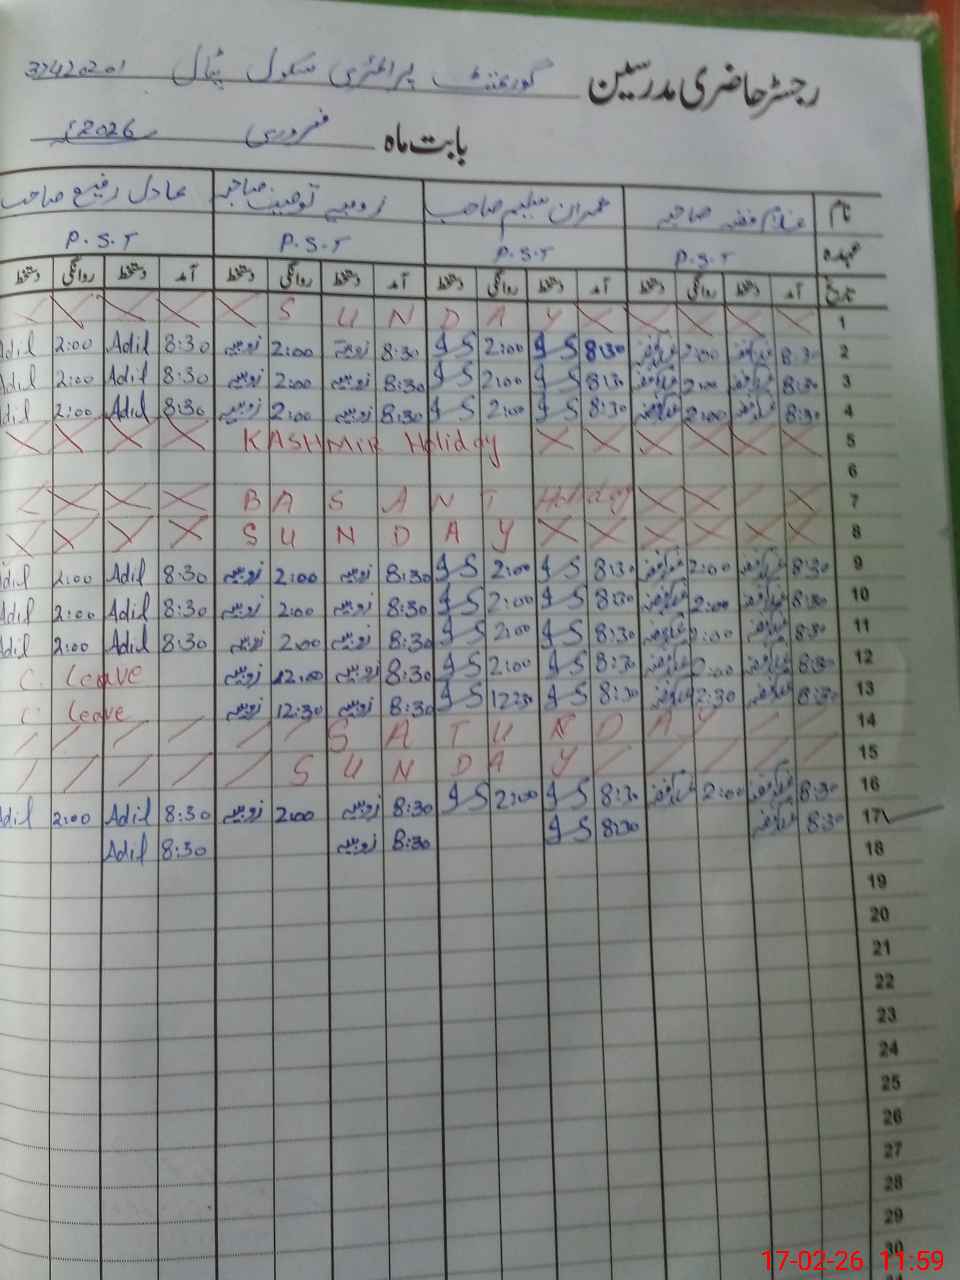 رجسٹر حاضری مدرسین گورنمنٹ پرائمری سکول پٹیال 37420201
بابت ماہ فروری 2026ء
نام صاحبہ عمران سلیم صاحب زوبیہ توصیف صاحبہ عادل رفیع صاحب
عہدہ P.S.T P.S.T P.S.T P.S.T
تاریخ آمد دستخط روانگی دستخط آمد دستخط روانگی دستخط آمد دستخط روانگی دستخط آمد دستخط روانگی دستخط
1 SUNDAY
2 8:30 2:00 8:30 IS 2:00 IS 8:30 زوبیہ 2:00 زوبیہ 8:30 Adil 2:00 Adil
3 8:30 2:00 8:30 IS 2:00 IS 8:30 زوبیہ 2:00 زوبیہ 8:30 Adil 2:00 Adil
4 8:30 2:00 8:30 IS 2:00 IS 8:30 زوبیہ 2:00 زوبیہ 8:30 Adil 2:00 Adil
5 KASHMIR Holiday
6
7 BASANT Holiday
8 SUNDAY
9 8:30 2:00 8:30 IS 2:00 IS 8:30 زوبیہ 2:00 زوبیہ 8:30 Adil 2:00 Adil
10 8:30 2:00 8:30 IS 2:00 IS 8:30 زوبیہ 2:00 زوبیہ 8:30 Adil 2:00 Adil
11 8:30 2:00 8:30 IS 2:00 IS 8:30 زوبیہ 2:00 زوبیہ 8:30 Adil 2:00 Adil
12 8:30 2:00 8:30 IS 2:00 IS 8:30 زوبیہ 12:00 زوبیہ C. Leave
13 8:30 12:30 8:30 IS 12:30 IS 8:30 زوبیہ 12:30 زوبیہ C. Leave
14 SATURDAY
15 SUNDAY
16 8:30 2:00 8:30 IS 2:00 IS 8:30 زوبیہ 2:00 زوبیہ 8:30 Adil 2:00 Adil
17 8:30 8:30 IS 8:30 زوبیہ 8:30 Adil
18
19
20
21
22
23
24
25
26
27
28
29
30
17-02-26 11:59